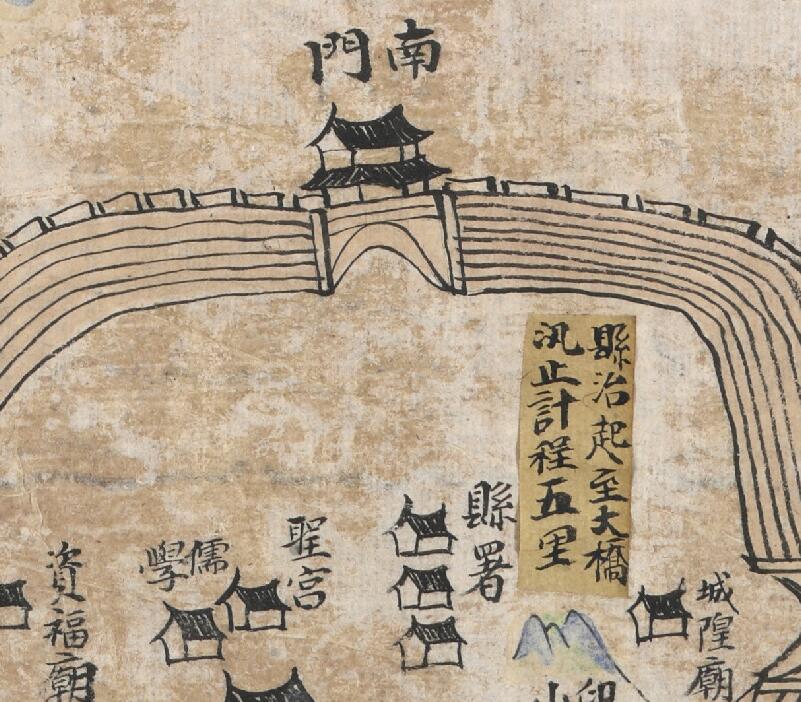 南門
縣治起至大橋
汛止計程五里
縣署
聖宮
儒學
資福廟
城隍廟
印山